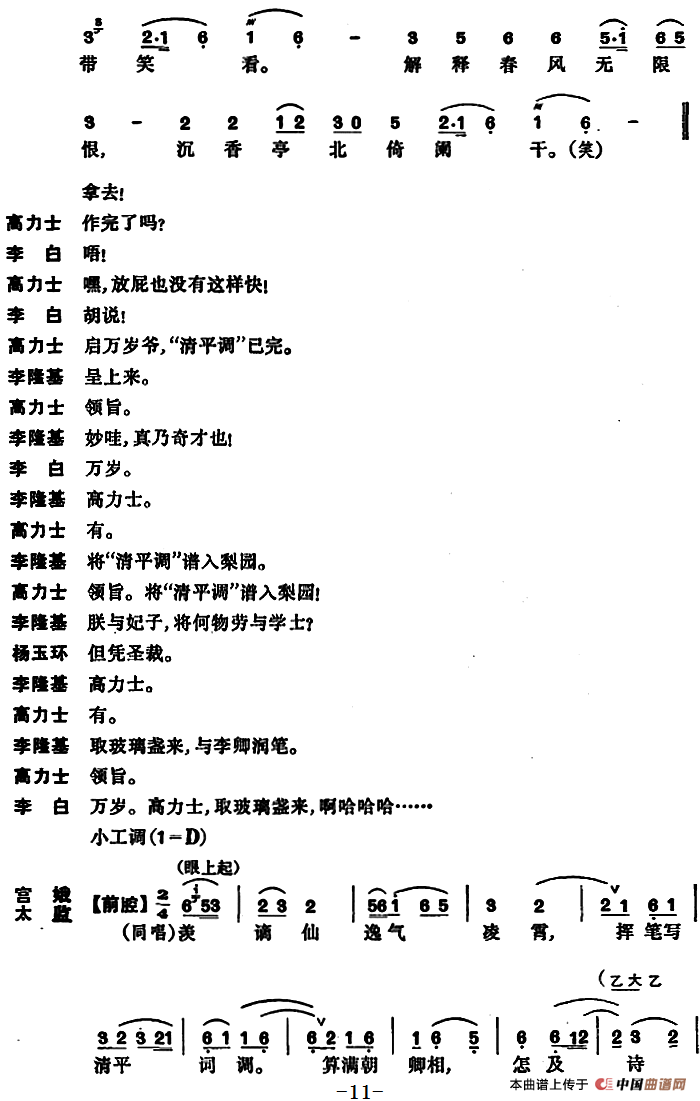 3 2·1 6 1 6 - 3 5 6 6 5·1 6 5
带 笑 看。 解 释 春 风 无 限
3 - 2 2 1 2 3 0 5 2·1 6 1 6 -
恨， 沉 香 亭 北 倚 阑 干。(笑)
拿去！
高力士 作完了吗？
李 白 唔！
高力士 嘿，放屁也没有这样快！
李 白 胡说！
高力士 启万岁爷，“清平调”已完。
李隆基 呈上来。
高力士 领旨。
李隆基 妙哇，真乃奇才也！
李 白 万岁。
李隆基 高力士。
高力士 有。
李隆基 将“清平调”谱入梨园。
高力士 领旨。将“清平调”谱入梨园！
李隆基 朕与妃子，将何物劳与学士？
杨玉环 但凭圣裁。
李隆基 高力士。
高力士 有。
李隆基 取玻璃盏来，与李卿润笔。
高力士 领旨。
李 白 万岁。高力士，取玻璃盏来，啊哈哈哈……
小工调(1=D)
(眼上起)
宫 娥
太 监
【前腔】 2/4 6 53 | 2 3 2 | 56 1 6 5 | 3 2 | 2 1 6 1 |
(同唱)羡 谪 仙 逸 气 凌 霄， 挥 笔写
(乙 大 乙
3 2 3 21 | 6 1 1 6 | 6 2 1 6 | 1 6 5 | 6 6 12 | 2 3 2 |
清平 词 调。 算满朝 卿相， 怎 及 诗
-11-
本曲谱上传于 中国曲谱网